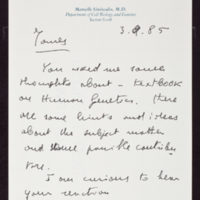 Marcello Siniscalco, M.D.
Department of Cell Biology and Genetics
Section Head
3.9.85
James
You need me some
thoughts about a textbook
on Human Genetics. There
are some hints and ideas
about the subject matter
and some possible contribu
tors.
I am curious to hear
your reaction